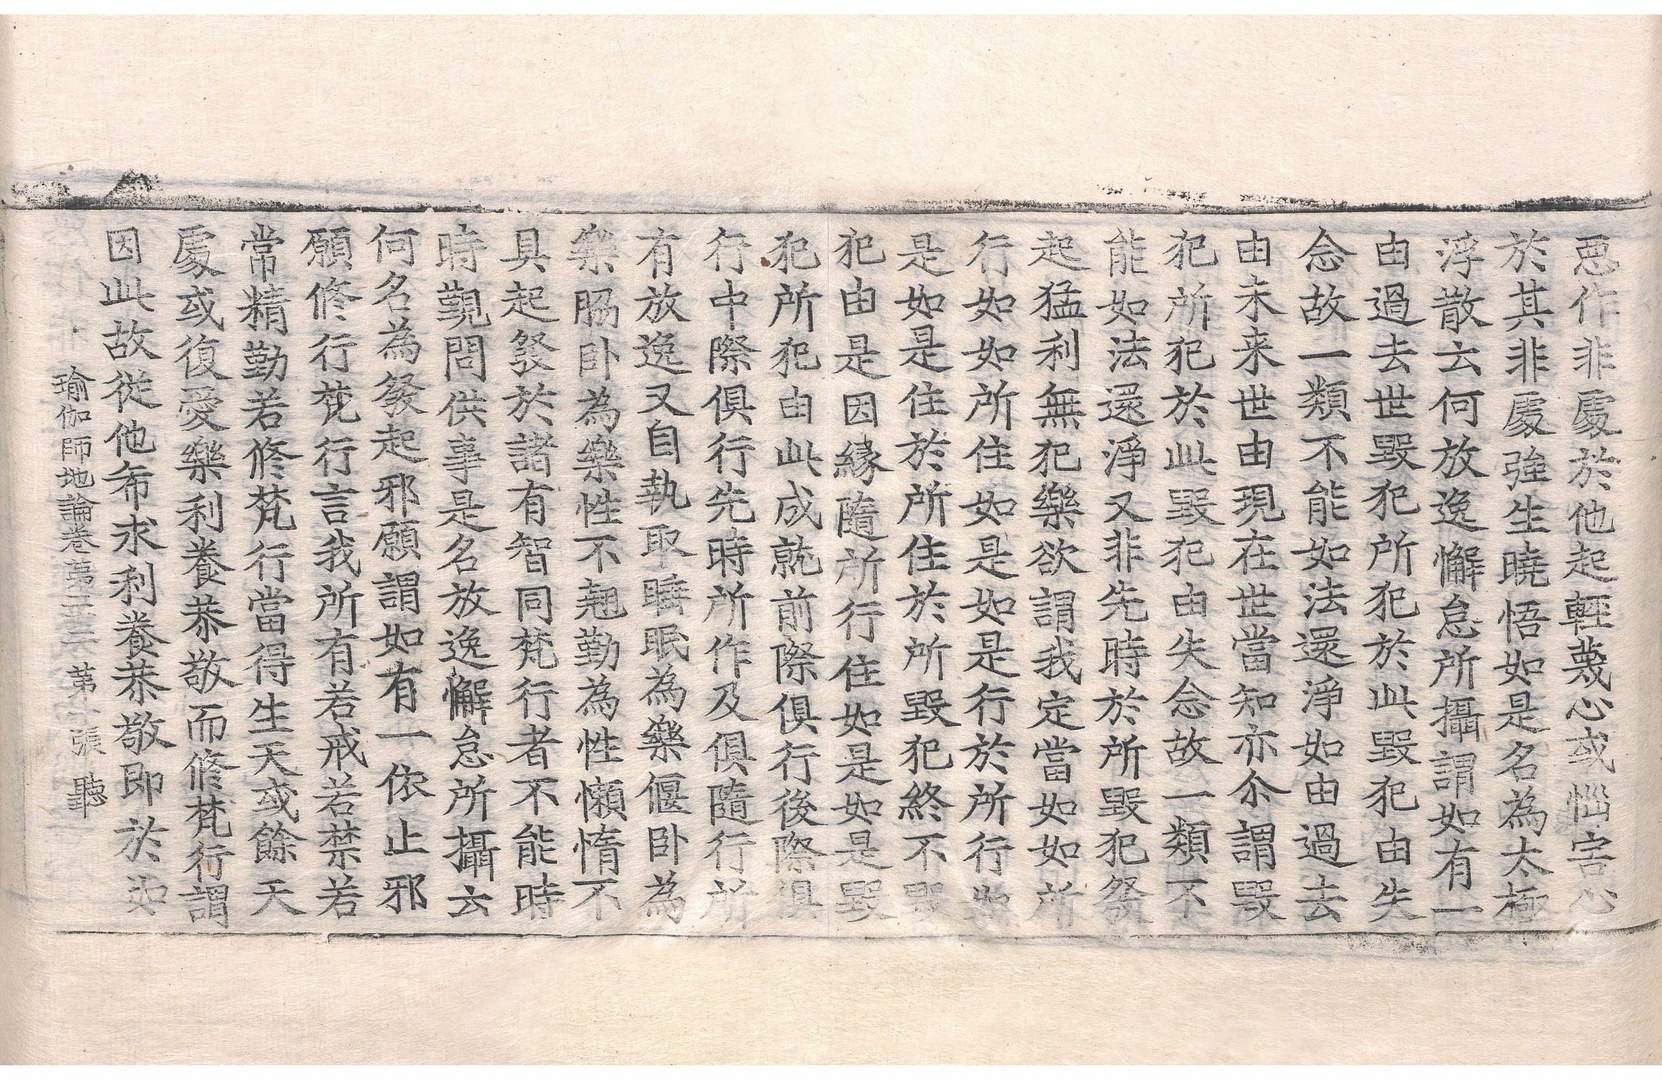 惡作非處於他起輕蔑心或惱害心
於其非處強生曉悟如是名為太極
浮散云何放逸懈怠所攝謂如有一
由過去世毀犯所犯於此毀犯由失
念故一類不能如法還淨如由過去
由未来世由現在世當知亦尒謂毀
犯所犯於此毀犯由失念故一類不
能如法還淨又非先時於所毀犯發
起猛利無犯樂欲謂我定當如如所
行如如所住如是如是行於所行如
是如是住於所住於所毀犯終不毀
犯由是因緣隨所行住如是如是毀
犯所犯由此成就前際俱行後際俱
行中際俱行先時所作及俱隨行所
有放逸又自執取睡眠為樂偃卧為
樂脇卧為樂性不翹勤為性懶惰不
具起發於諸有智同梵行者不能時
時覲問供事是名放逸懈怠所攝云
何名為發起邪願謂如有一依止邪
願修行梵行言我所有若戒若禁若
常精勤若修梵行當得生天或餘天
處或復愛樂利養恭敬而修梵行謂
因此故從他布求利養恭敬即於如
瑜伽師地論卷第二十二 第 張 聽